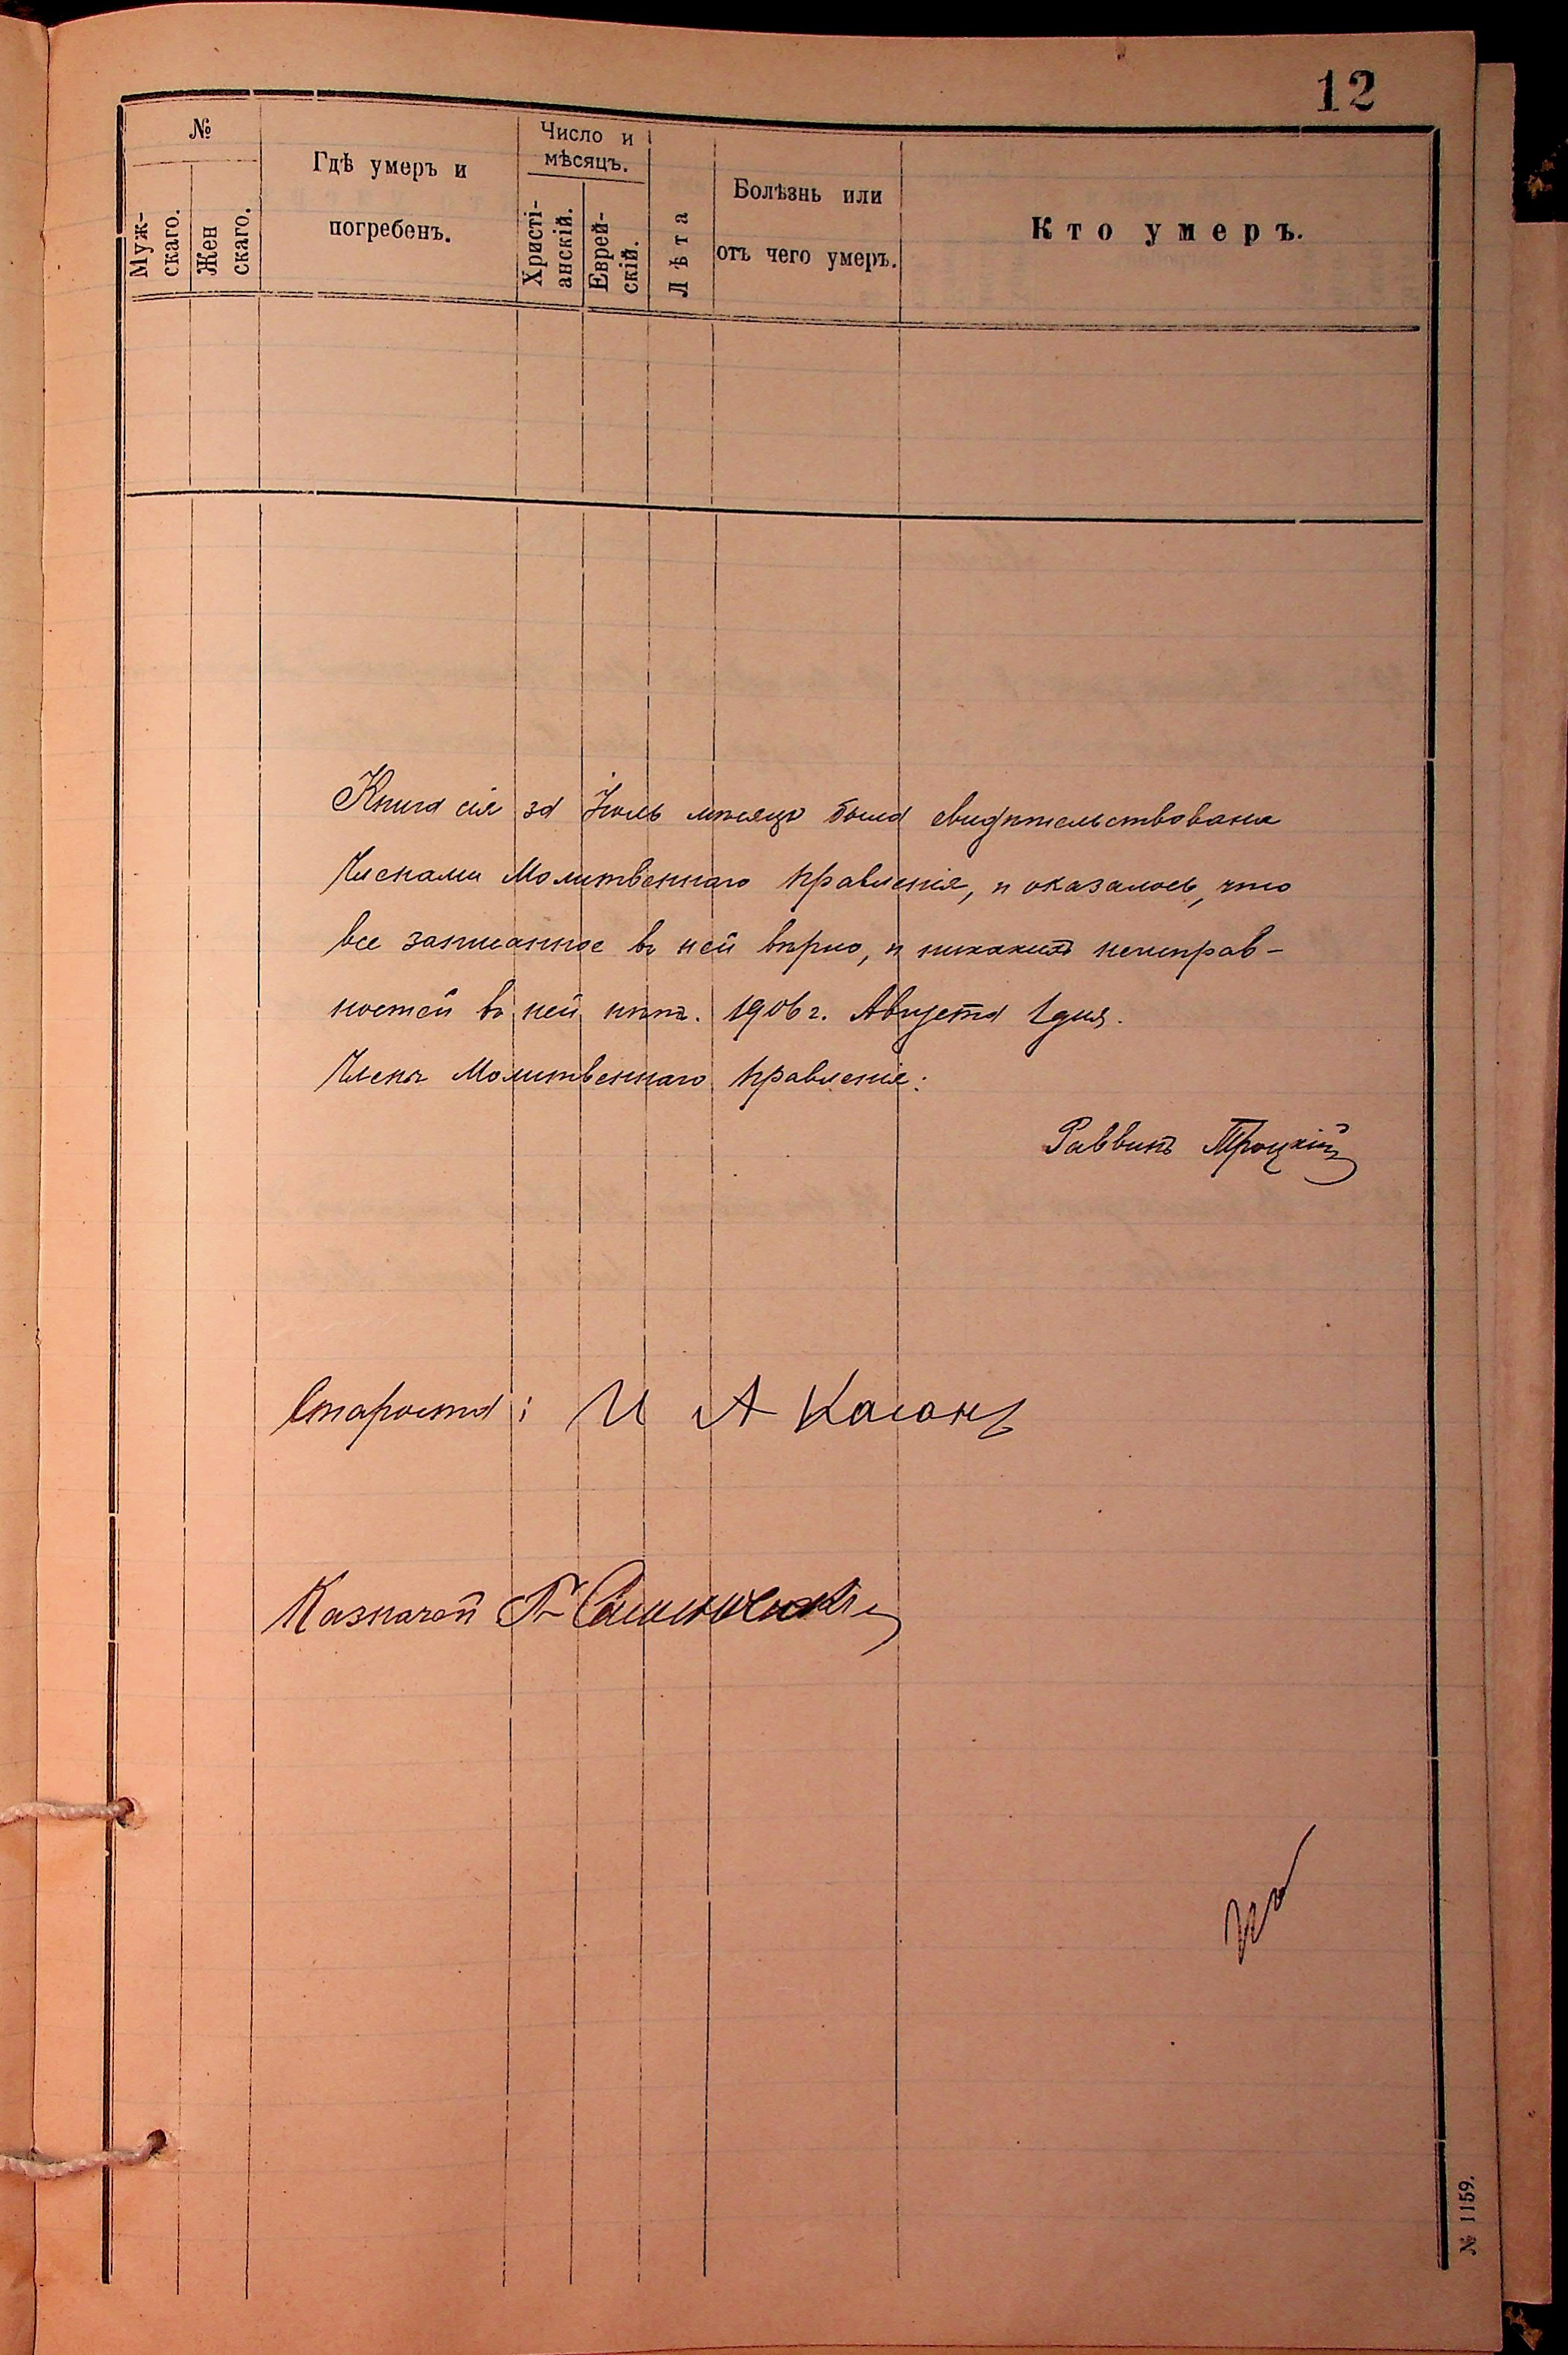 12
№
Муж-
скаго.
Жен
скаго.
Гдѣ умеръ и
погребенъ.
Число и
мѣсяцъ.
Христі-
анскій.
Еврей-
скій.
Лѣта
Болѣзнь или
отъ чего умеръ.
Кто умеръ.
Книга сія за Іюль мѣсяцъ была свидѣтельствована
Членами Молитвеннаго Правленія, и оказалось, что
все записанное въ ней вѣрно, и никакихъ неисправ-
ностей въ ней нѣтъ. 1906 г. Августа 1 дня.
Члены Молитвеннаго Правленія:
Раввинъ Троцкій
Староста: И А Каганъ
Казначей
№ 1159.